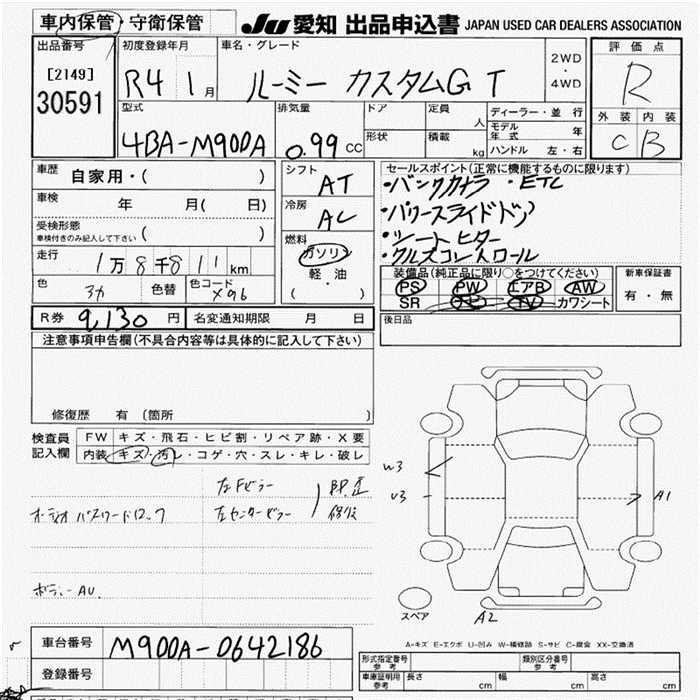 車内保管・守衛保管
JU 愛知 出品申込書 JAPAN USED CAR DEALERS ASSOCIATION
出品番号
[2149]
30591
初度登録年月
R4 1月
車名・グレード
ルーミー カスタムG T
2WD
・
4WD
評価点
R
外装 内装
C B
型式
4BA-M900A
排気量
0.99 CC
ドア
形状
定員
人
積載
kg
ディーラー・並行
モデル年式 年
ハンドル 左・右
車歴
自家用・( )
車検
年 月( 日)
受検形態
車検付きのみ記入して下さい ( )
走行
1万8千811km
色
色替
色コード
X96
シフト
AT
冷房
AC
燃料
ガソリン
軽・油
( )
セールスポイント(正常に機能するものに限ります)
・バックカメラ ・ETC
・パワースライドドア
・シートヒーター
・クルズコントロール
装備品(純正品に限り○をつけてください)
PS PW エアB AW
SR ナビ TV カワシート
新車保証書
有・無
R券 9,130円
名変通知期限 月 日
後日品
注意事項申告欄(不具合内容等は具体的に記入して下さい)
修復歴 有 (箇所 )
検査員記入欄
FW キズ・飛石・ヒビ割・リペア跡・X要
内装 キズ・汚レ・コゲ・穴・スレ・キレ・破レ
左Fピラー
左センターピラー
オーディオパスワードロック
W3
U3
A1
A2
スペア
A-キズ E-エクボ U-凹み W-補修跡 S-サビ C-腐食 XX-交換済
車台番号
M900A-0642186
登録番号
型式指定番号
参考
類別区分番号
参考
車庫証明用
参考
長さ cm
幅 cm
高さ cm